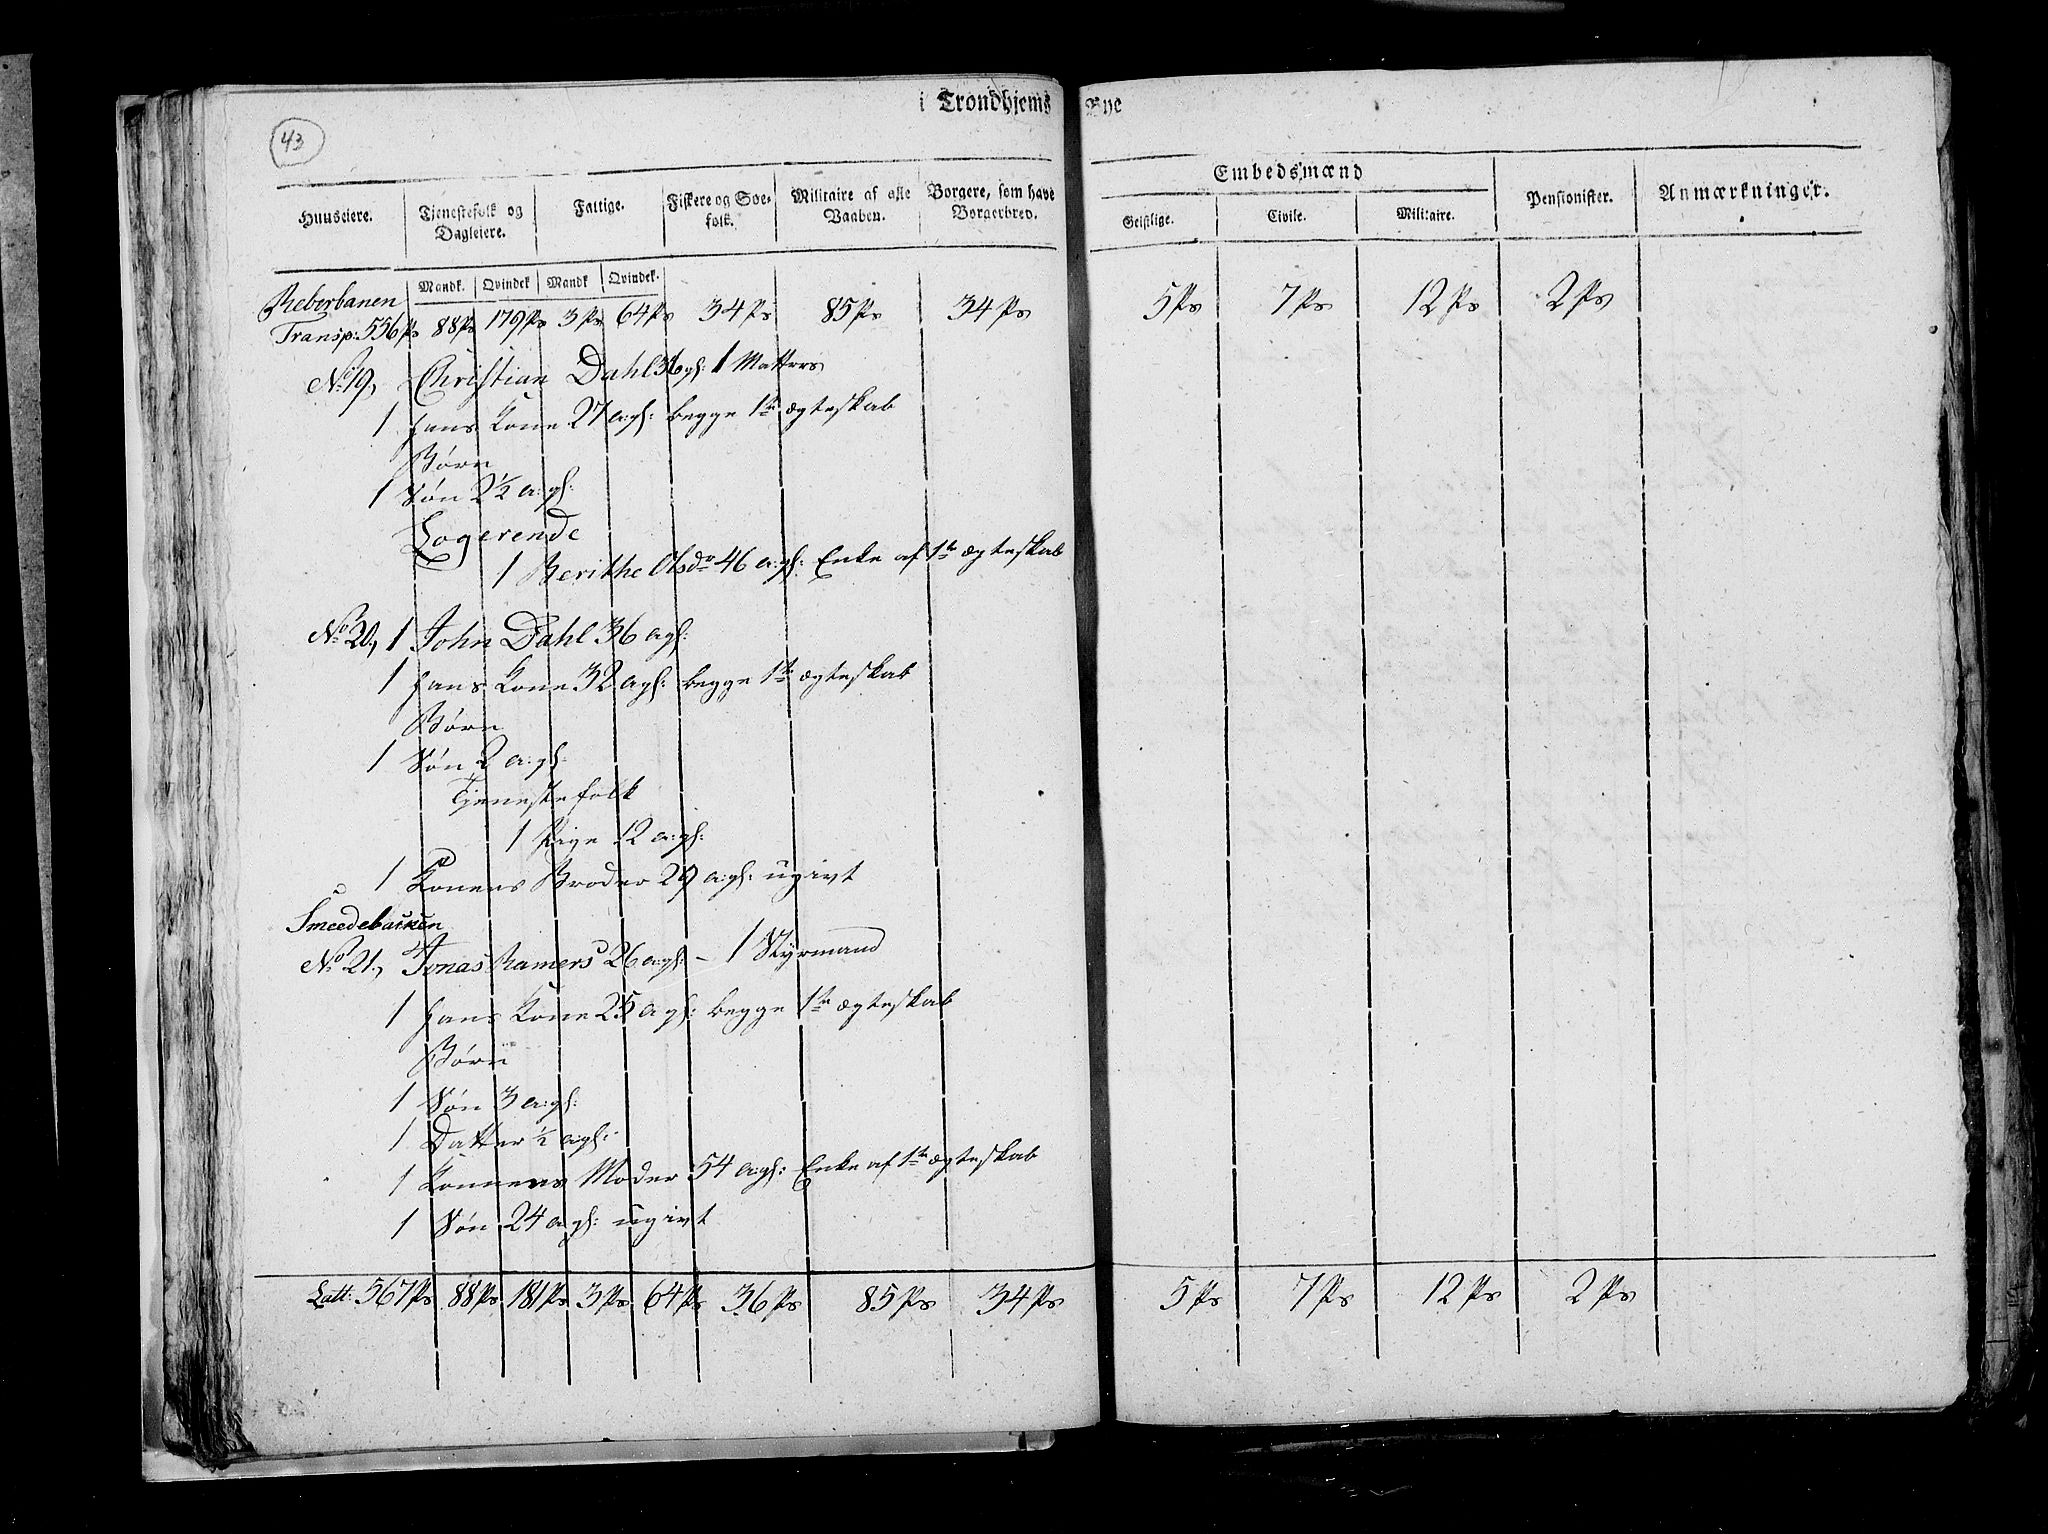 43
i Trondhjems Bye
Huuseiere. Tjenestefolk og Dagleiere. Fattige. Fiskere og Søefolk. Militaire af alle Vaaben. Borgere, som have Borgerbrev. Embedsmænd Geistlige. Civile. Militaire. Pensionister. Anmærkninger.
Mandk. Qvindek Mandk Qvindek.
Reberbanen
Transp: 556 Ps 88 Ps 179 Ps 3 Ps 64 Ps 34 Ps 85 Ps 34 Ps 5 Ps 7 Ps 12 Ps 2 Ps
No 19, Christian Dahl 36 a gl: 1 Mattros
1 hans Kone 27 a: gl: begge 1te ægteskab
Børn
1 Søn 2½ a: gl:
Logerende
1 Berithe Olsdr 46 a: gl: Enke af 1te ægteskab
No 20, 1 John Dahl 36 a gl:
1 hans Kone 32 a gl: begge 1te ægteskab
Børn
1 Søn 2 a: gl:
Tjenestefolk
1 Pige 12 a: gl:
1 Konens Broder 29 a: gl: ugivt
Smeedebakken
No 21, Jonas Ramers 26 a: gl: – 1 Styrmand
1 hans Kone 25 a gl: begge 1te ægteskab
Børn
1 Søn 3 a: gl:
1 Datter ½ a: gl:
1 Konens Moder 54 a: gl: Enke af 1te ægteskab
1 Søn 24 a: gl: ugivt
Latt: 567 Ps 88 Ps 181 Ps 3 Ps 64 Ps 36 Ps 85 Ps 34 Ps 5 Ps 7 Ps 12 Ps 2 Ps